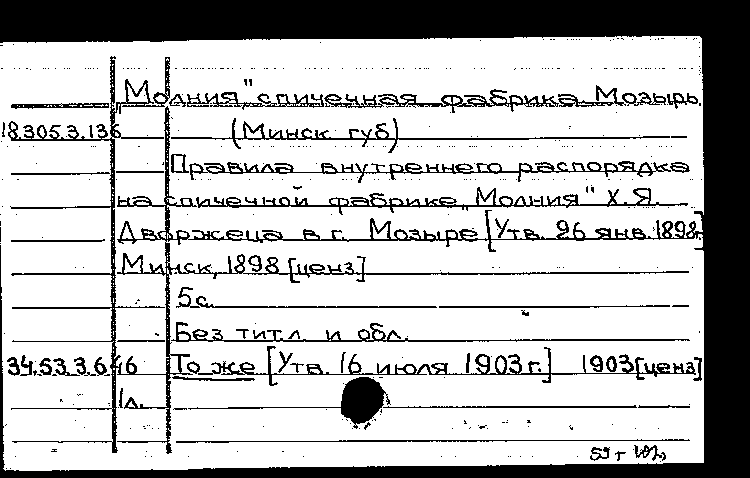 „Молния" спичечная фабрика. Мозырь
18.305.3.136 (Минск губ)
Правила внутреннего распорядка
на спичечной фабрике „Молния" Х.Я.
Дворжеца в г. Мозыре [Утв. 26 янв. 1898г.]
Минск, 1898 [ценз]
5с.
Без тит.л. и обл.
34.53.3.646 То же [Утв. 16 июля 1903 г.] 1903 [ценз]
1л.